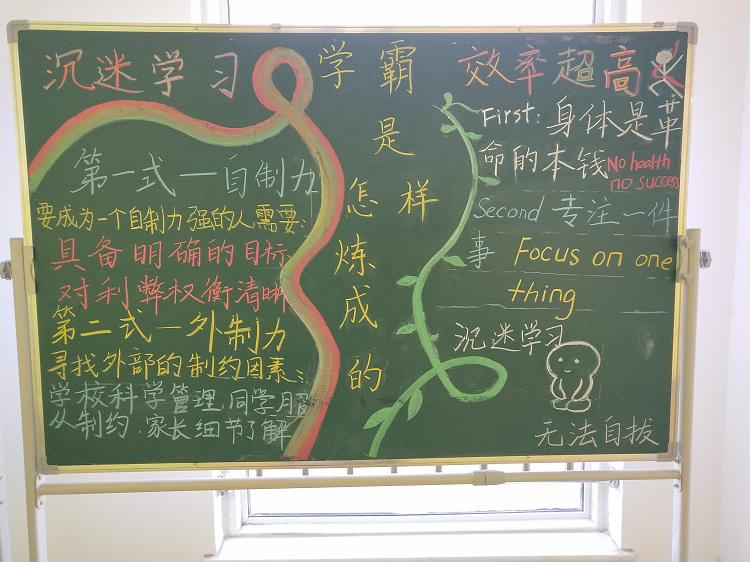 沉迷学习
第一式一自制力
要成为一个自制力强的人需要:
具备明确的目标
对利弊权衡清晰
第二式一外制力
寻找外部的制约因素:
学校科学管理,同学月
从制约.家长细节了解
学霸
是
怎样
炼
成
的
效率超高
First: 身体是革
命的本钱 No health
no success
Second 专注一件
事 Focus on one
thing
沉迷学习
无法自拔